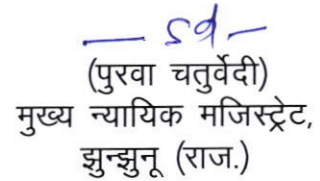 (पुरवा चतुर्वेदी)
मुख्य न्यायिक मजिस्ट्रेट,
झुन्झुनू (राज.)